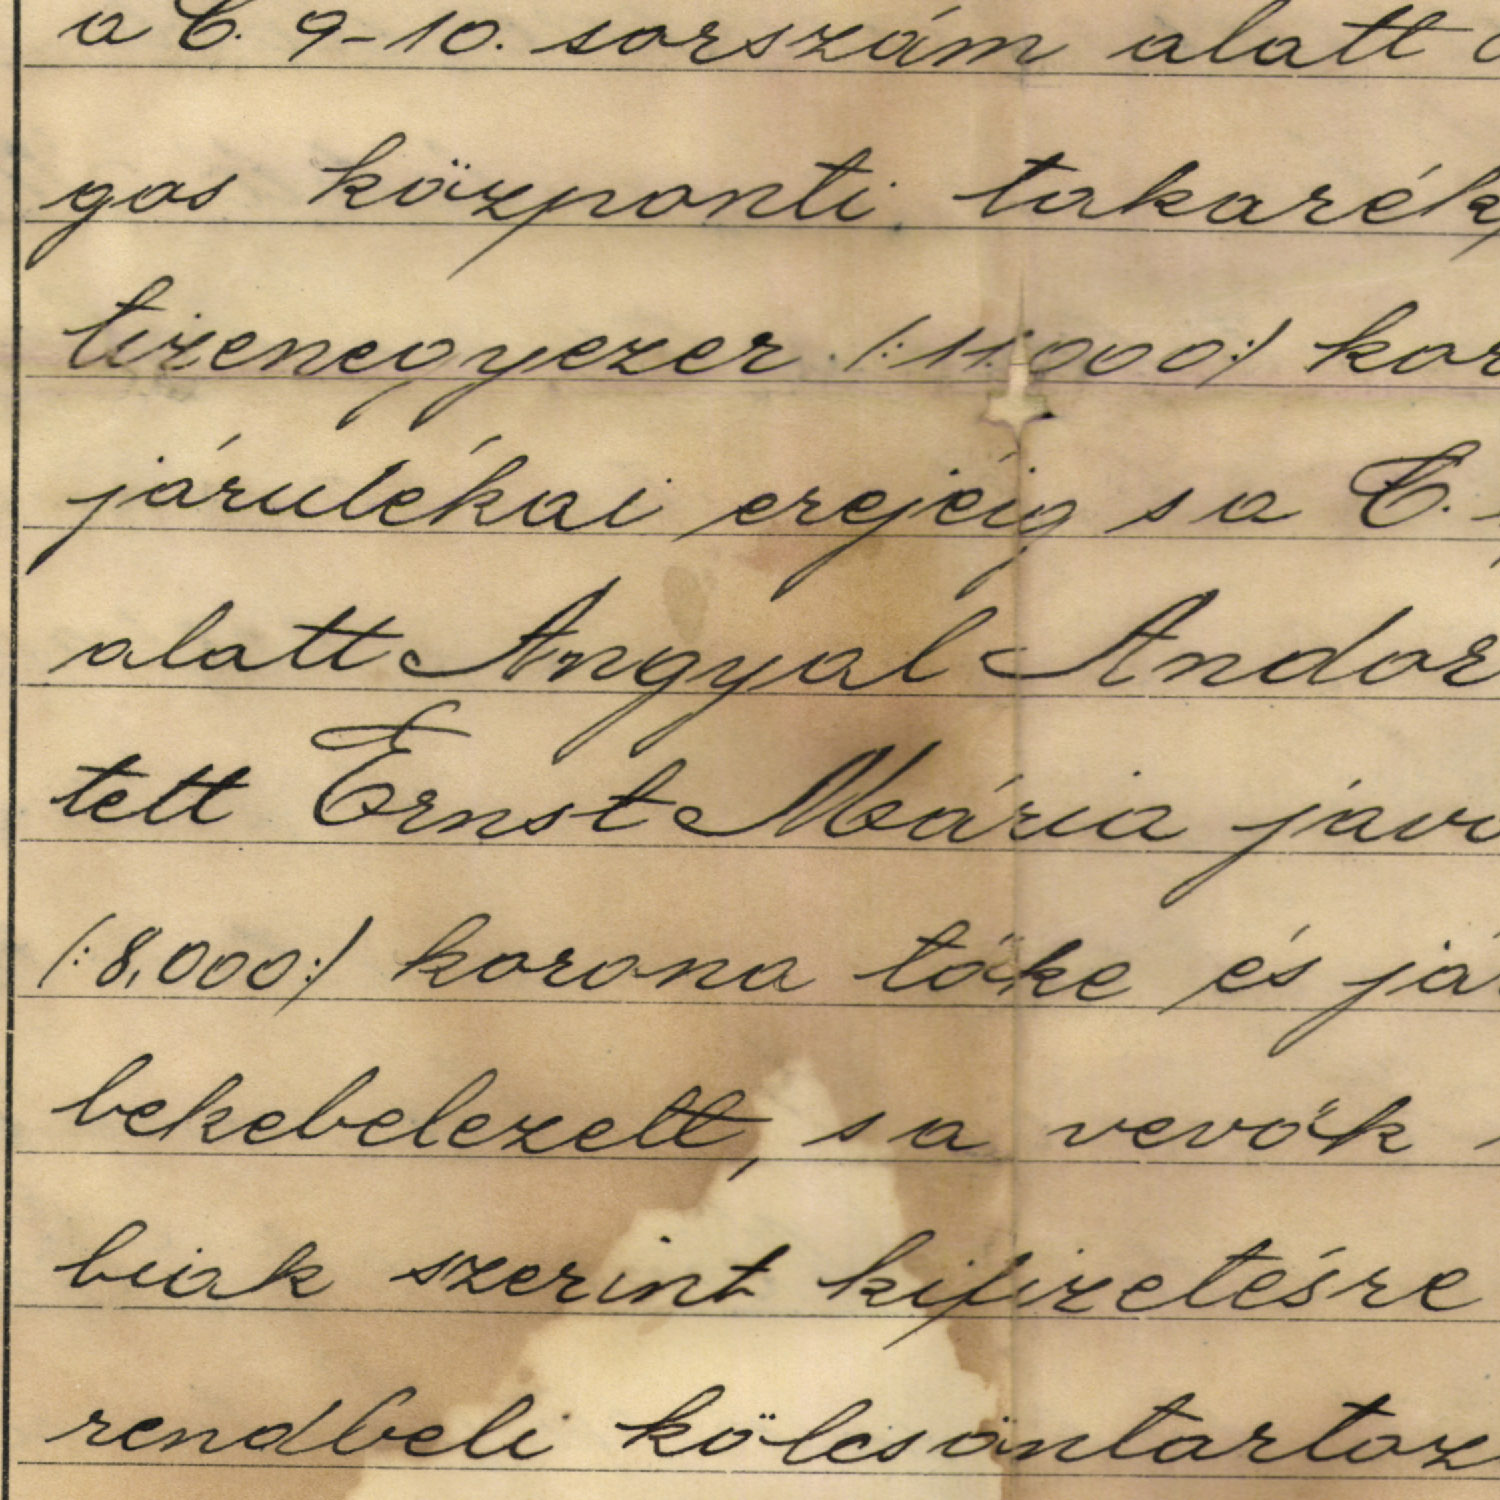 a C. 9-10. sorszám alatt
gos központi takarék
tizenegyezer (:11.000:) kor
járulékai erejéig s a C.
alatt Angyal Andor
tett Ernst Mária javá
(:8,000:) korona tőke és já
bekebelezett, s a vevők
biak szerint kifizetésre
rendbeli kölcsöntartoz